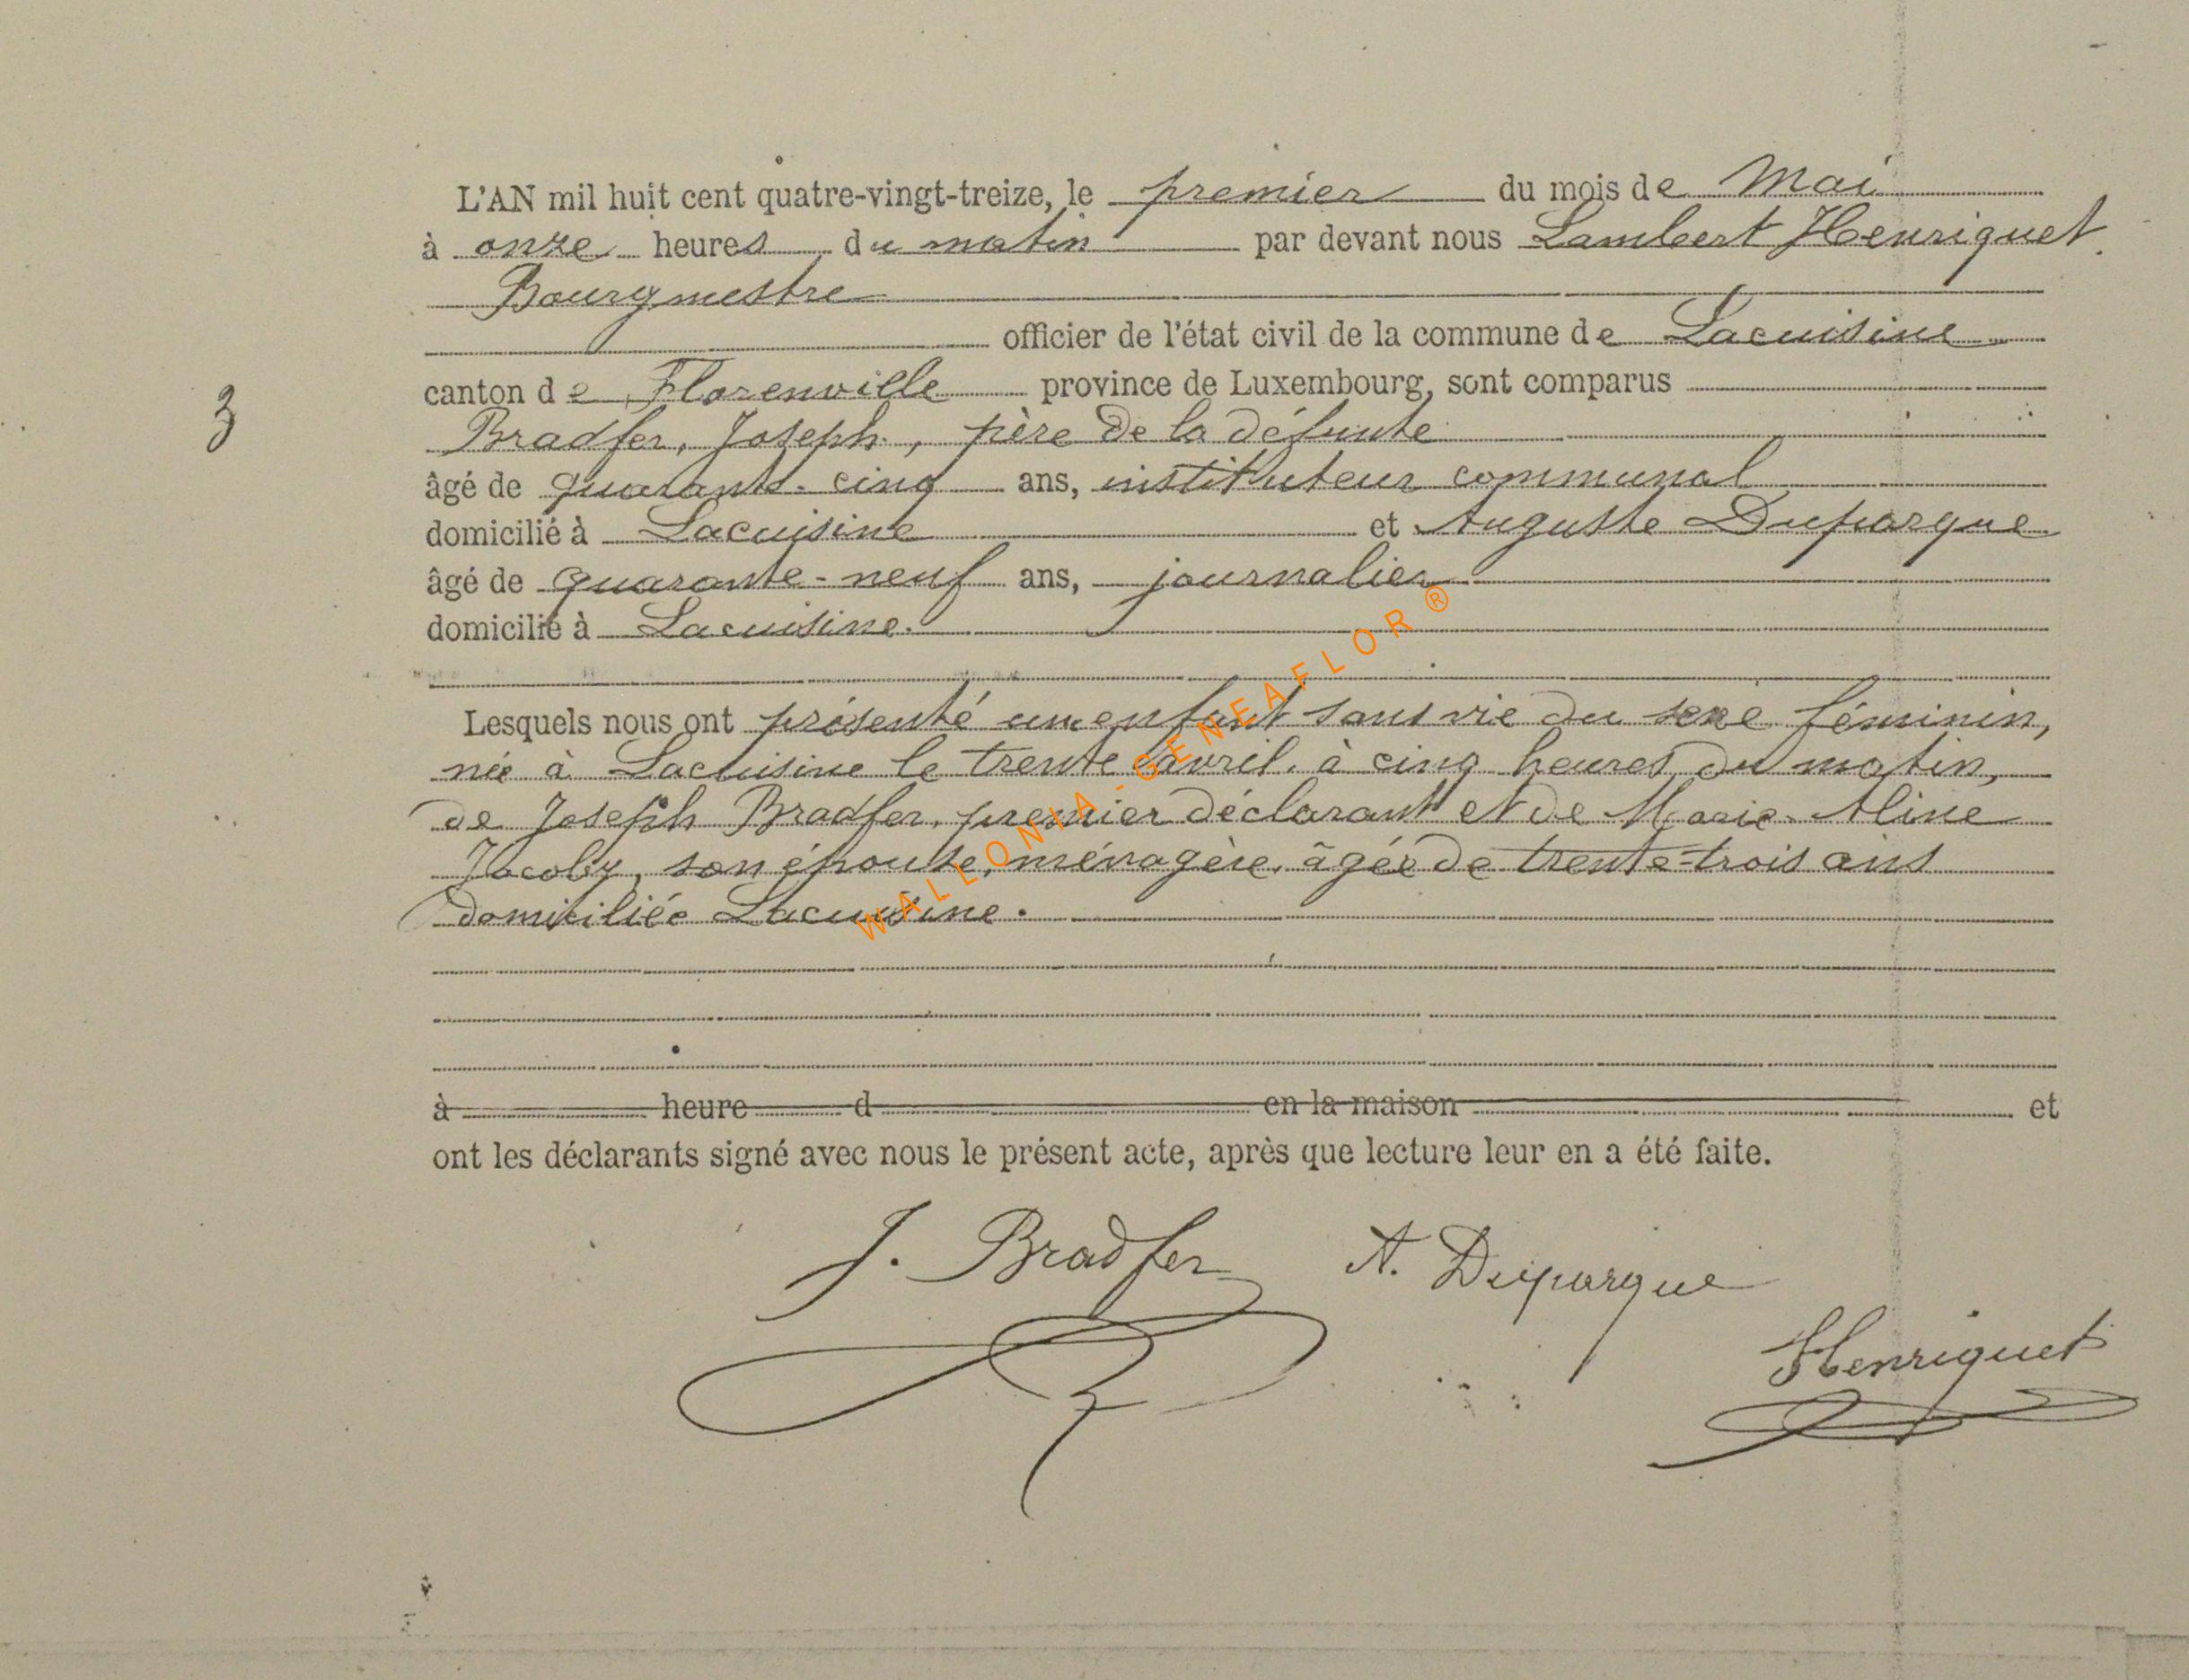 L'AN mil huit cent quatre-vingt-treize, le premier du mois de Mai
à onze heures du matin par devant nous Lambert Henriquet
Bourgmestre
officier de l'état civil de la commune de Lacuisine
canton de Florenville province de Luxembourg, sont comparus
3
Bradfer, Joseph, père de la défunte
âgé de quarante-cinq ans, instituteur communal
domicilié à Lacuisine et Auguste Duparque
âgé de quarante-neuf ans, journalier
domicilié à Lacuisine.
Lesquels nous ont présenté un enfant sans vie du sexe féminin,
née à Lacuisine le trente avril, à cinq heures du matin,
de Joseph Bradfer, premier déclarant et de Marie-Aline
Jacoby, son épouse, ménagère, âgée de trente-trois ans
domiciliée Lacuisine.
WALLONIA-GENEAFLOR ®
à heure d en la maison et
ont les déclarants signé avec nous le présent acte, après que lecture leur en a été faite.
J. Bradfer A. Duparque
Henriquet